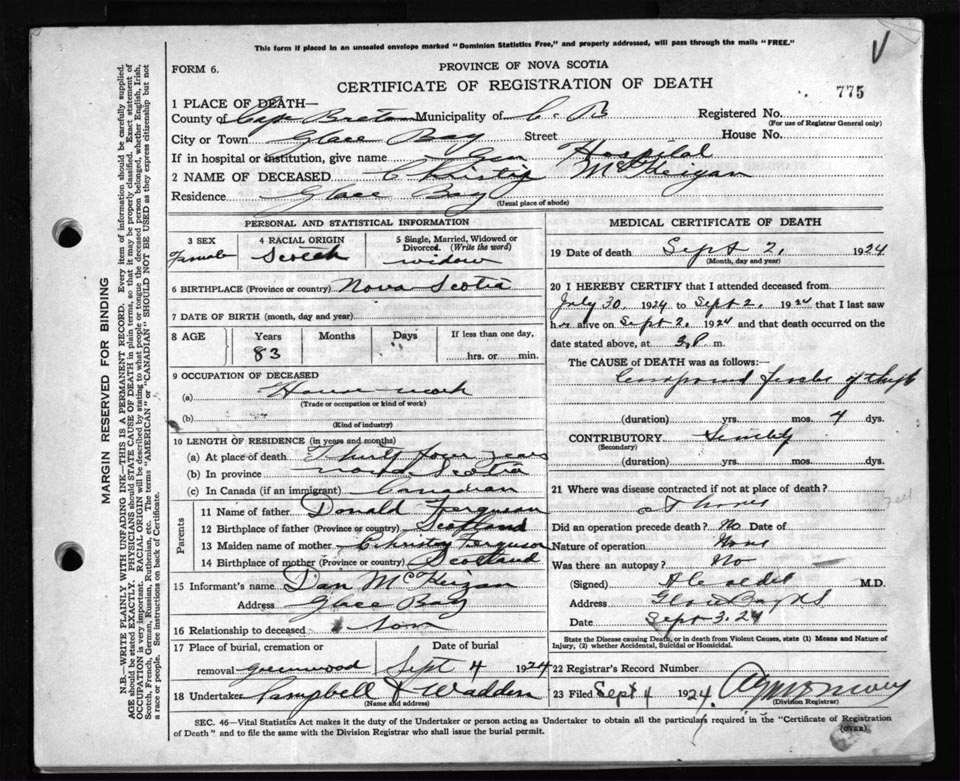 This form if placed in an unsealed envelope marked "Dominion Statistics Free," and properly addressed, will pass through the mails "FREE."
FORM 6.
PROVINCE OF NOVA SCOTIA
CERTIFICATE OF REGISTRATION OF DEATH
775
1 PLACE OF DEATH—
County of Cape Breton Municipality of C. B Registered No.
(For use of Registrar General only)
City or Town Glace Bay Street House No.
If in hospital or institution, give name Gen Hospital
2 NAME OF DECEASED Christy McKeigan
Residence Glace Bay
(Usual place of abode)
PERSONAL AND STATISTICAL INFORMATION
3 SEX Female
4 RACIAL ORIGIN Scotch
5 Single, Married, Widowed or Divorced. (Write the word)
widow
6 BIRTHPLACE (Province or country) Nova Scotia
7 DATE OF BIRTH (month, day and year)
8 AGE Years Months Days If less than one day,
83 hrs. or min.
9 OCCUPATION OF DECEASED
(a) House work
(Trade or occupation or kind of work)
(b)
(Kind of industry)
10 LENGTH OF RESIDENCE (in years and months)
(a) At place of death Thirty four years
(b) In province Nova Scotia
(c) In Canada (if an immigrant) Canadian
Parents
11 Name of father Donald Ferguson
12 Birthplace of father (Province or country) Scotland
13 Maiden name of mother Christy Ferguson
14 Birthplace of mother (Province or country) Scotland
15 Informant's name Dan McKeigan
Address Glace Bay
16 Relationship to deceased Son
17 Place of burial, cremation or removal Date of burial
greenwood Sept 4 1924
18 Undertaker Campbell & Wadden
(Name and address)
MEDICAL CERTIFICATE OF DEATH
19 Date of death Sept 2, 1924
(Month, day and year)
20 I HEREBY CERTIFY that I attended deceased from
July 30. 1924 to Sept 2. 1924 that I last saw
her alive on Sept 2. 1924 and that death occurred on the
date stated above, at 3 P. m.
The CAUSE OF DEATH was as follows:
Compound of thigh
(duration) yrs. mos. 4 dys.
CONTRIBUTORY Senility
(Secondary)
(duration) yrs. mos. dys.
21 Where was disease contracted if not at place of death?
at home
Did an operation precede death? No Date of
Nature of operation None
Was there an autopsy? No
(Signed) M.D.
Address Glace Bay NS
Date Sept 3. 24
State the Disease causing Death, or in death from Violent Causes, state (1) Means and Nature of Injury, (2) whether Accidental, Suicidal or Homicidal.
22 Registrar's Record Number
23 Filed Sept 4 1924
(Division Registrar)
SEC. 46—Vital Statistics Act makes it the duty of the Undertaker or person acting as Undertaker to obtain all the particulars required in the "Certificate of Registration
of Death" and to file the same with the Division Registrar who shall issue the burial permit.
(OVER)
MARGIN RESERVED FOR BINDING
N.B.—WRITE PLAINLY WITH UNFADING INK—THIS IS A PERMANENT RECORD. Every item of information should be carefully supplied.
AGE should be stated EXACTLY. PHYSICIANS should STATE CAUSE OF DEATH in plain terms, so that it may be properly classified. Exact statement of
OCCUPATION is very important. RACIAL ORIGIN will be described by stating to what people or tongue the deceased person belonged, whether English, Irish,
Scotch, French, German, Russian, Ruthenian, etc. The terms "AMERICAN" or "CANADIAN" SHOULD NOT BE USED as they express citizenship but not
a race or people. See instructions on back of Certificate.